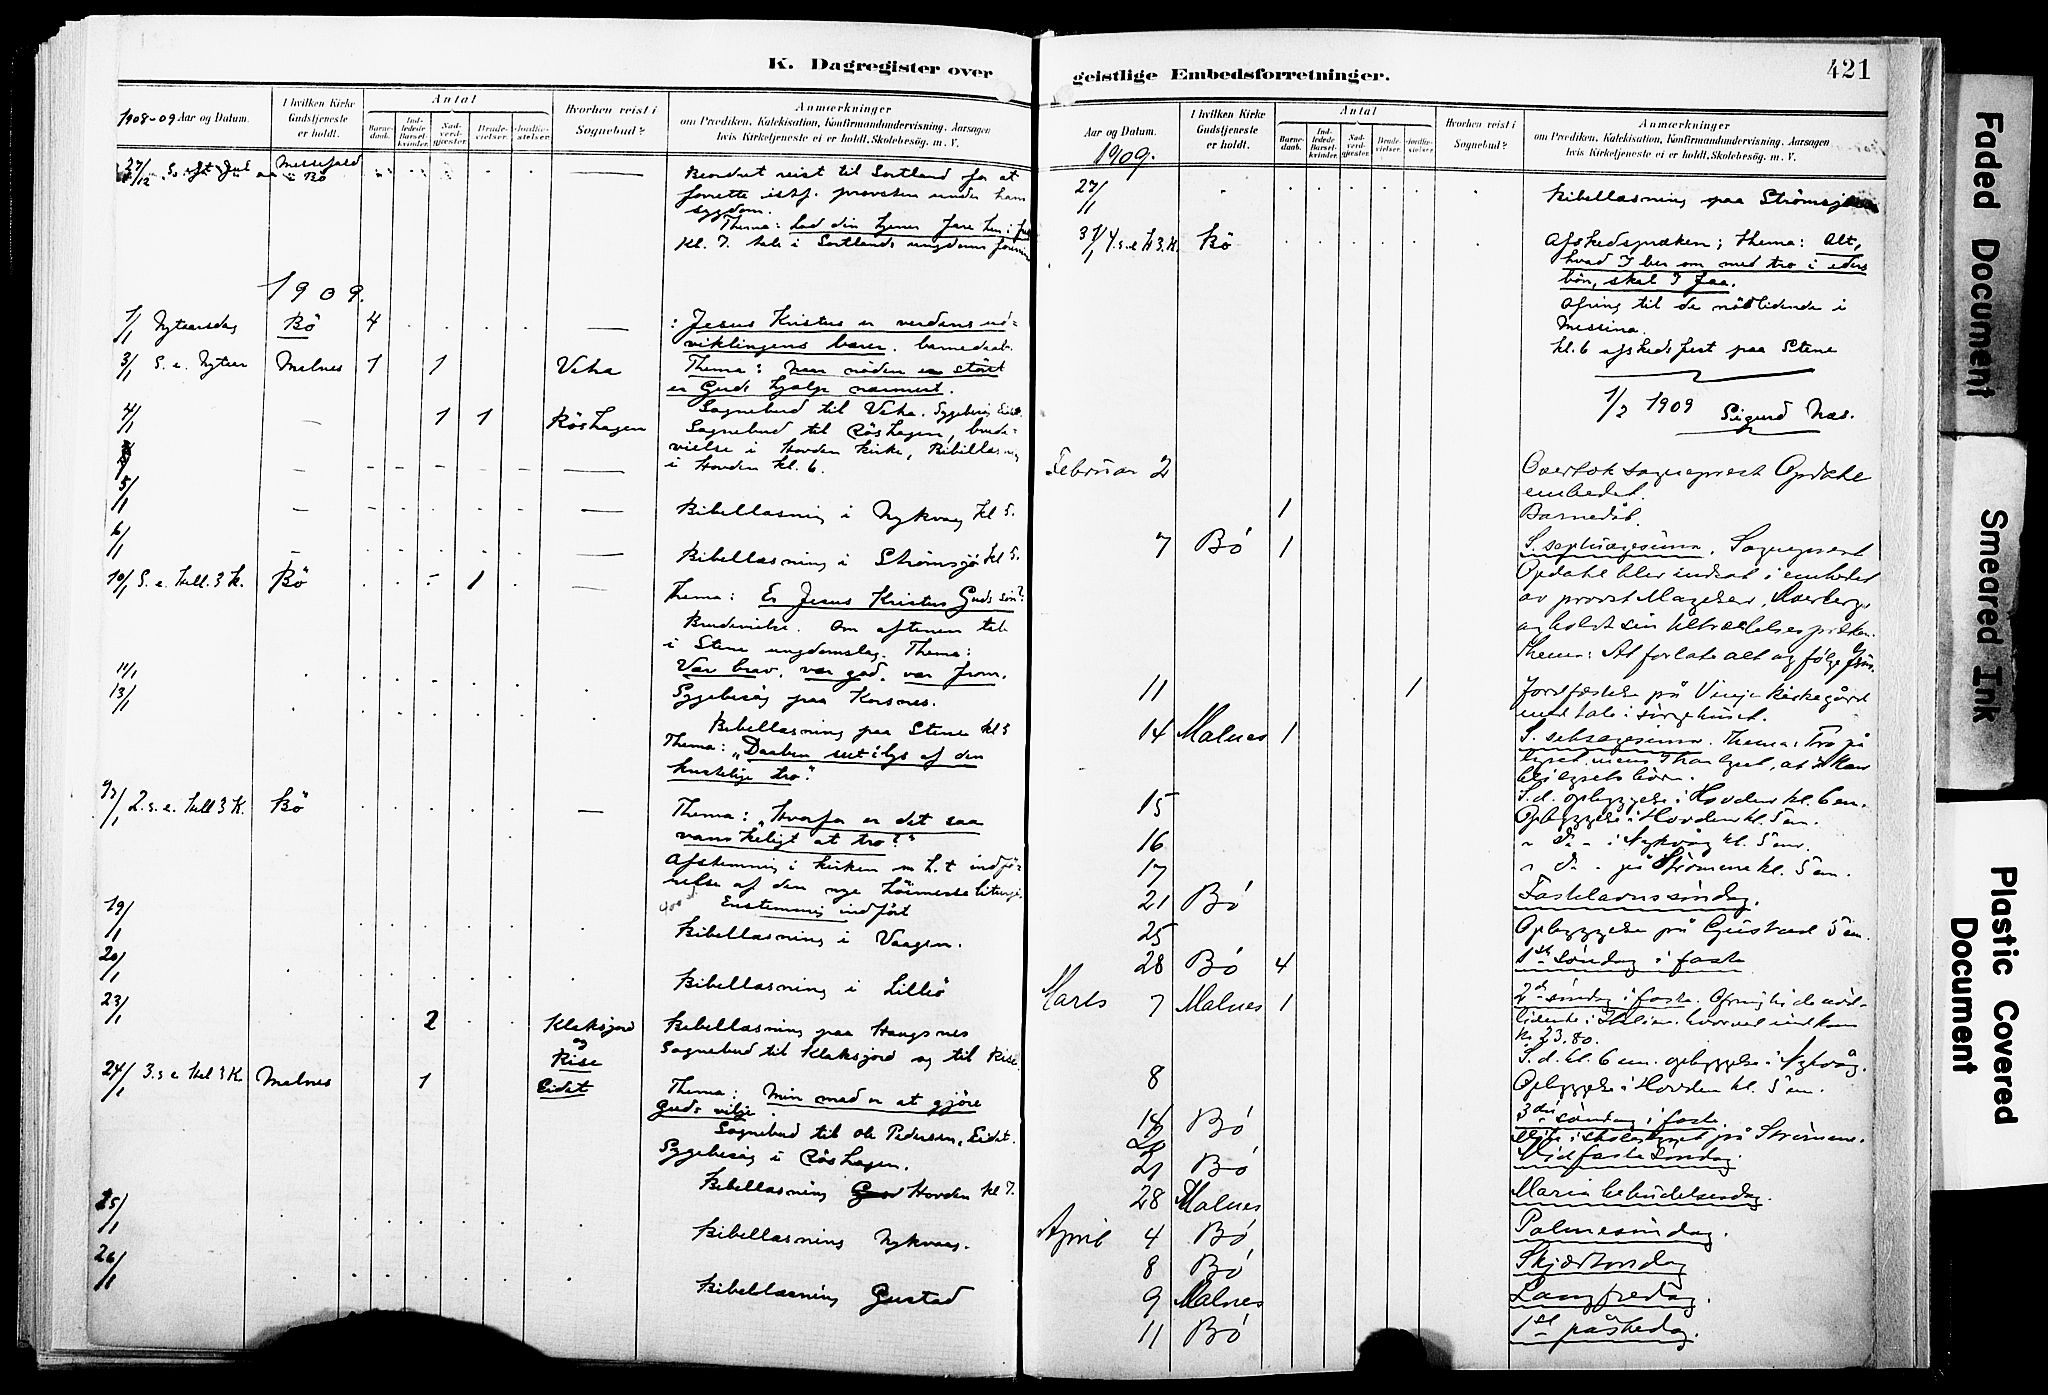 K. Dagregister over
1908-09 Aar og Datum.
I hvilken Kirke Gudstjeneste er holdt.
Antal
Barne-daab.
Ind-ledede Barsel-kvinder.
Nad-verd-gjæster.
Brude-vielser.
Jordfæ-stelser.
Hvorhen reist i Sognebud?
Anmærkninger
om Prædiken, Katekisation, Konfirmandundervisning. Aarsagen
hvis Kirketjeneste ei er holdt, Skolebesøg. m. V.
27/12 S. eft. Jul Messefald i Bö Beordret reist til Sortland for at
forrette istf. provsten under hans
sygdom.
Thema: Lad din tjener fare hen i fred
Kl. 7. tale i Sortlands ungdoms forening
1909.
1/1 Nytaarsdag Bö 4 : Jesus Kristus er verdens ud-
viklingens bærer. barnedaab.
3/1 S. e. Nytaar Malnes 1 1 Veha Thema: Naar nöden er störst
er Guds hjælp nærmest.
Sognebud til Veha. Sygebesög
4/1 1 1 Röshagen Sognebud til Röshagen, brude-
vielse i Hovden kirke, Bibellæsning
i Hovden kl. 6.
5/1 Bibellæsning i Nykvaag kl 5.
6/1 Bibellæsning i Strömsjö kl 5.
10/1 S. e. hell. 3 K. Bö 1 Thema: Er Jesus Kristus Guds sön?
Brudevielse. Om aftenen tale
i Stene ungdomslag. Thema:
Vær brav, vær god, vær from.
11/1 Sygebesög paa Korsnes.
13/1 Bibellæsning paa Stene kl 5
Thema: "Daaben set i lys af den
kristelige tro".
17/1 2. s. e. hell 3 K. Bö Thema: "Hvorfor er det saa
vanskeligt at tro?"
Afstemning i kirken m. h. t indfö-
relse af den nye höimesseliturgi.
Enstemmig indfört
19/1 Bibellæsning i Vaagen.
20/1 Bibellæsning i Lillö
23/1 2 Klaksjord og Rise Bibellæsning paa Haugsnes
Sognebud til Klaksjord og til Rise.
24/1 3. s e hel 3 K. Malnes 1 Eidet Thema: Min mad er at gjöre
Guds vilje.
Sognebud til Ole Pedersen, Eidet.
Sygebesög i Röshagen.
Bibellæsning Hovden kl 7.
25/1 Bibellæsning Nykvaag.
26/1 Bibellæsning Gustad
geistlige Embedsforretninger.
421
Aar og Datum.
1909.
I hvilken Kirke Gudstjeneste er holdt.
Antal
Barne-daab.
Ind-ledede Barsel-kvinder.
Nad-verd-gjæster.
Brude-vielser.
Jordfæ-stelser.
Hvorhen reist i Sognebud?
Anmærkninger
om Prædiken, Katekisation, Konfirmandundervisning. Aarsagen
hvis Kirketjeneste ei er holdt, Skolebesøg. m. V.
27/1 Bibellæsning paa Strömsjö
31/1 4. s. e h 3. K. Bö Afskedspræken; thema: Alt,
hvad I ber om med tro i eders
bön, skal I faa.
Ofring til de nödlidende i
Messina.
kl. 6 afskedsfest paa Stene
1/2 1909 Sigurd Næs.
Februar 2 Overtok sogneprest Opdahl
embedet.
1 Barnedåb.
7 Bø 1 S. septuagesima. Sogneprest
Opdahl blev indsat i embedet
av provst Magelsen, Kverberg,
og holdt sin tiltrædelsespræken.
Thema: At forlate alt og følge Jesus.
11 1 Jordfæstelse på Vinje kirkegård
med tale i sørgehuset.
14 Malnes 1 S. seksagesima. Thema: Tro på
lyset, mens I har lyset, at I kan
bli lysets børn.
S. d. opbyggelse i Hovden kl. 6 em.
15 Opbyggelse i Hovden kl. 5 em.
16 " d. - i Nykvåg kl. 5 em.
17 " d. - på Strømmen kl. 5 em.
21 Bø Fastelavnssøndag.
25 Opbyggelse på Gustad 5 em.
28 Bø 4 1ste søndag i faste
Marts 7 Malnes 1 2den søndag i faste. Ofring til de nød-
lidende i Italien, hvorved indkom
kr 23.80.
S. d. kl. 6 em. opbyggelse i Nykvåg.
8 Opbyggelse i Hovden kl. 5 em.
14 Bø 3die søndag i faste.
20 Møte i skolestyret på Strømmen.
21 Bø Midfastesøndag.
28 Malnes Maria bebudelsesdag.
April 4 Bø Palmesøndag.
8 Bø Skjærtorsdag
9 Malnes Langfredag.
11 Bø 1ste påskedag.
Faded Document
Smeared Ink
Plastic Covered Document